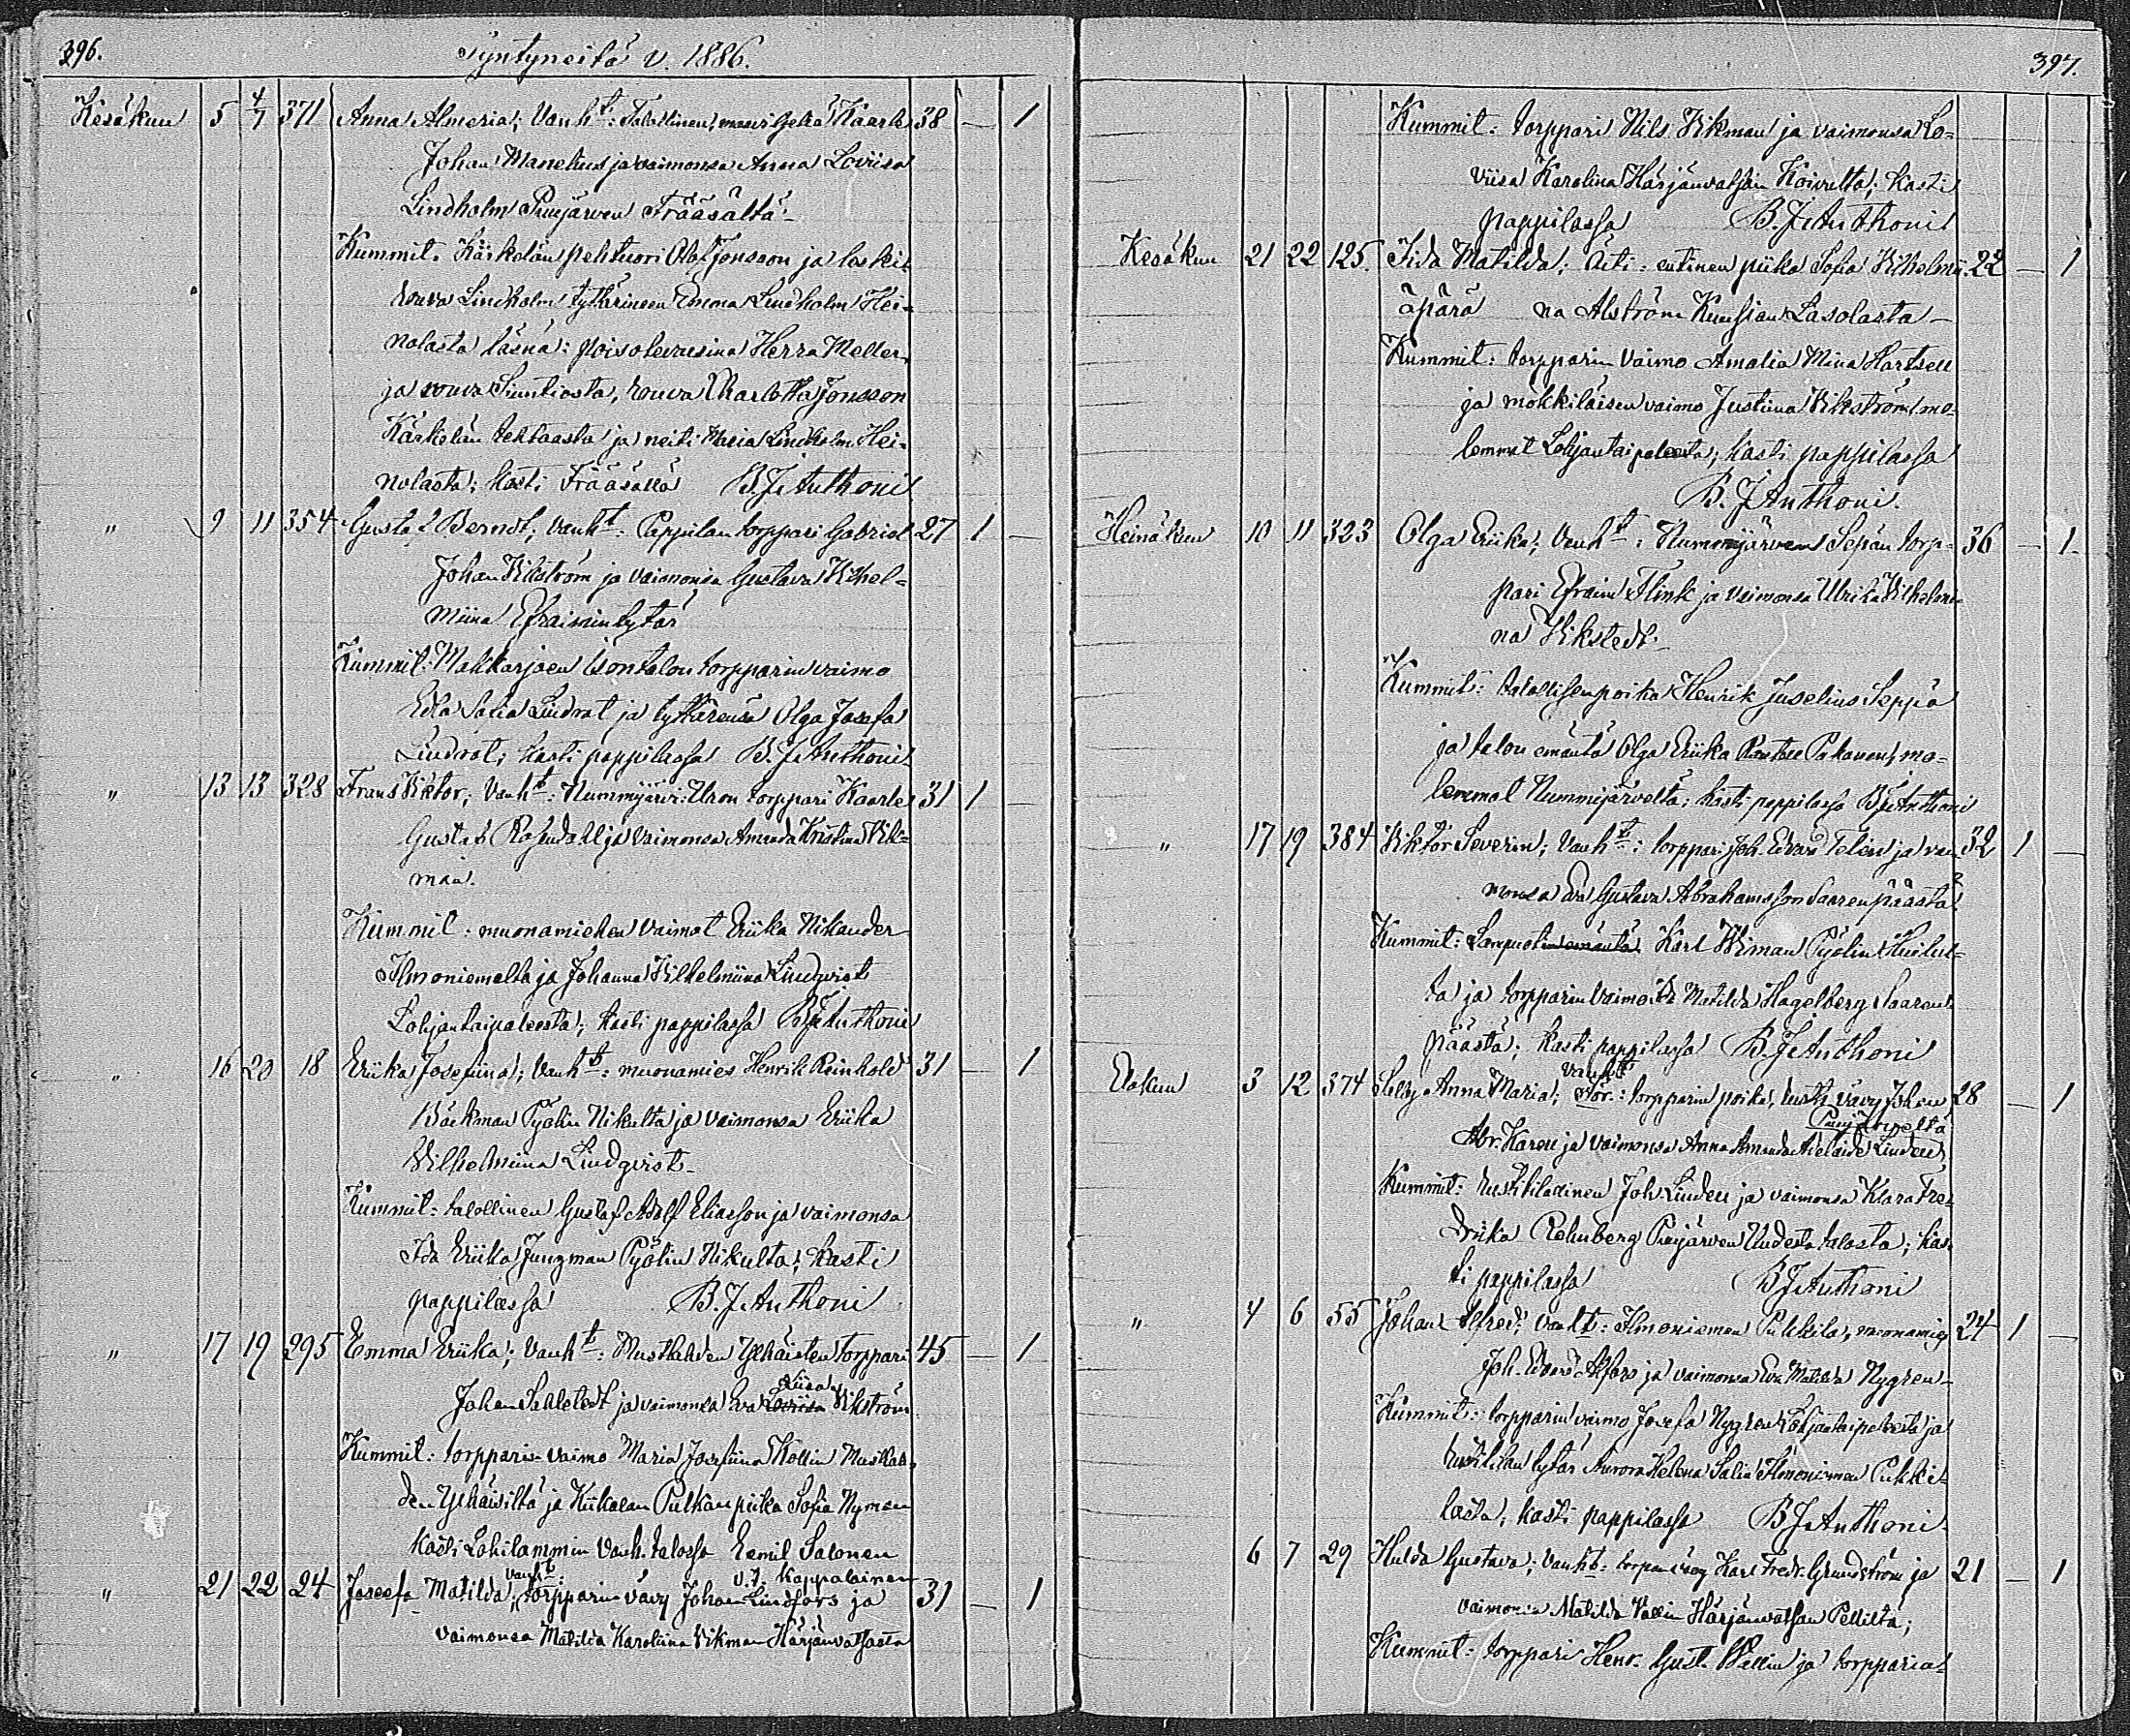 396.
Syntyneitä v. 1886.
Kesäkuu 5 4/7 371 Anna Almeria; Vanh.t: Talollinen, maanviljeliä Kaarle 38 — 1
Johan Manelius ja vaimonsa Anna Loviisa
Lindholm Puujärven Frääsältä —
Kummit: Kärkelän pehtuori Olof Jonsson ja leski-
rouva Lindholm tyttärineen Emma Lindholm Hei-
nolasta läsnä: poisolevaisina Herra Meller
ja rouva Siuntiosta, rouva Charlotta Jonsson
Kärkelän tehtaasta ja neiti Maria Lindholm Hei-
nolasta; kasti Frääsällä B. J. Anthoni
" 9 11 354 Gustaf Berndt; Vanh.t: Pappilan torppari Gabriel 27 1 —
Johan Vikström ja vaimonsa Gustava Vilhel-
miina Efraimintytär
Kummit: Makkarjoen Isontalon torpparin vaimo
Edla Sofia Lindrot ja tyttärensä Olga Josefa
Lindrot; kasti pappilassa B. J. Anthoni
" 13 13 328 Frans Viktor; Vanh.t: Nummijärvi: Uron torppari Kaarle 31 1 —
Gustaf Rosendahl ja vaimonsa Amanda Kristina Vik-
man.
Kummit: muonamiehen vaimot Eriika Nikander
Ilmoniemeltä ja Johanna Vilhelmiina Lindqvist
Lohjantaipaleesta; kasti pappilassa B. J. Anthoni
" 16 20 18 Eriika Josefiina; Vanh.t: muonamies Henrik Reinhold 31 — 1
Bäckman Pyölin Nikulta ja vaimonsa Eriika
Vilhelmiina Lindqvist —
Kummit: talollinen Gustaf Adolf Eliasson ja vaimonsa
Ida Eriika Jungman Pyölin Nikulta; kasti
pappilassa B. J. Anthoni
" 17 19 295 Emma Eriika; Vanh.t: Mustlahden Yphäisten torppari 45 — 1
Liisa
Johan Sahlstedt ja vaimonsa Eva Loviisa Vikström
Kummit: torpparin vaimo Maria Josefiina Kollin Mustlah-
den Yphäisiltä ja Kiikalan Pulkan piika Sofia Nyman
kasti Lohilammin Vanh. talossa Eemil Salonen
v. t. kappalainen
Vanh.t:
" 21 22 24 Josefa Matilda; torpparin vävy Johan Lindfors ja 31 — 1
vaimonsa Matilda Karoliina Vikman Härjänvatsasta
397.
Kummit: torppari Nils Vikman ja vaimonsa Lo-
viisa Karolina Härjänvatsan Koivulta; kasti
pappilassa B. J. Anthoni
Kesäkuu 21 22 125. Iida Matilda; Äiti: entinen piika Sofia Vilhelmii- 22 — 1
äpärä na Alström Kuusian Lasolasta —
Kummit: torpparin vaimo Amalia Miina Hartsell
ja mökkiläisen vaimo Justiina Vikström mo-
lemmat Lohjantaipaleesta; kasti pappilassa
B. J. Anthoni.
Heinäkuu 10 11 323 Olga Eriika; Vanh.t: Nummijärven Sepän torp- 36 — 1
pari Efraim Flink ja vaimonsa Ulrika Vilhelmi-
na Vikstedt.
Kummit: talollisenpoika Henrik Juselius Seppä
ja talon emäntä Olga Eriika Pakanen, mo-
lemmat Nummijärveltä; kasti pappilassa B. J. Anthoni
" 17 19 384 Viktor Severin; Vanh.t: torppari Joh. Edvard Telen ja vai- 32 1 —
monsa Eva Gustava Abrahamsson Saarenpäästä
Kummit: Lampuoti emäntä Karl Viman Pyölin
ta ja torpparin vaimo Ida Matilda Hagelberg Saaren-
päästä; kasti pappilassa B. J. Anthoni
Vanh.t
Elokuu 3 12 374 Selby Anna Maria; För.: torpparin poika, rusth. vävy Johan 28 — 1
Puujärveltä
Abr. Karen ja vaimonsa Anna Amanda Adelaide Linden
Kummit: rustitilallinen Joh. Linden ja vaimonsa Klara Fre-
drika Rehnberg Puujärven Uudesta talosta; kas-
ti pappilassa B J Anthoni
" 4 6 55 Johan Alfred; Vanh.t: Ilmoniemen Pukkila, muonamies 24 1 —
Joh. Edvard Alfors ja vaimonsa Eva Matilda Nygren —
Kummit: torpparin vaimo Josefa Nygren Lohjantaipaleesta ja
rustitilan tytär Aurora Helena Salin Ilmoniemen Pukki-
lasta; kasti pappilassa B J Anthoni
6 7 29 Hulda Gustava; Vanh.t: torpan vävy Karl Fredr. Grundström ja 21 — 1
vaimonsa Matilda Vallin Härjänvatsan Pelliltä;
Kummit: torppari Henr. Gust. Wallin ja torpparin